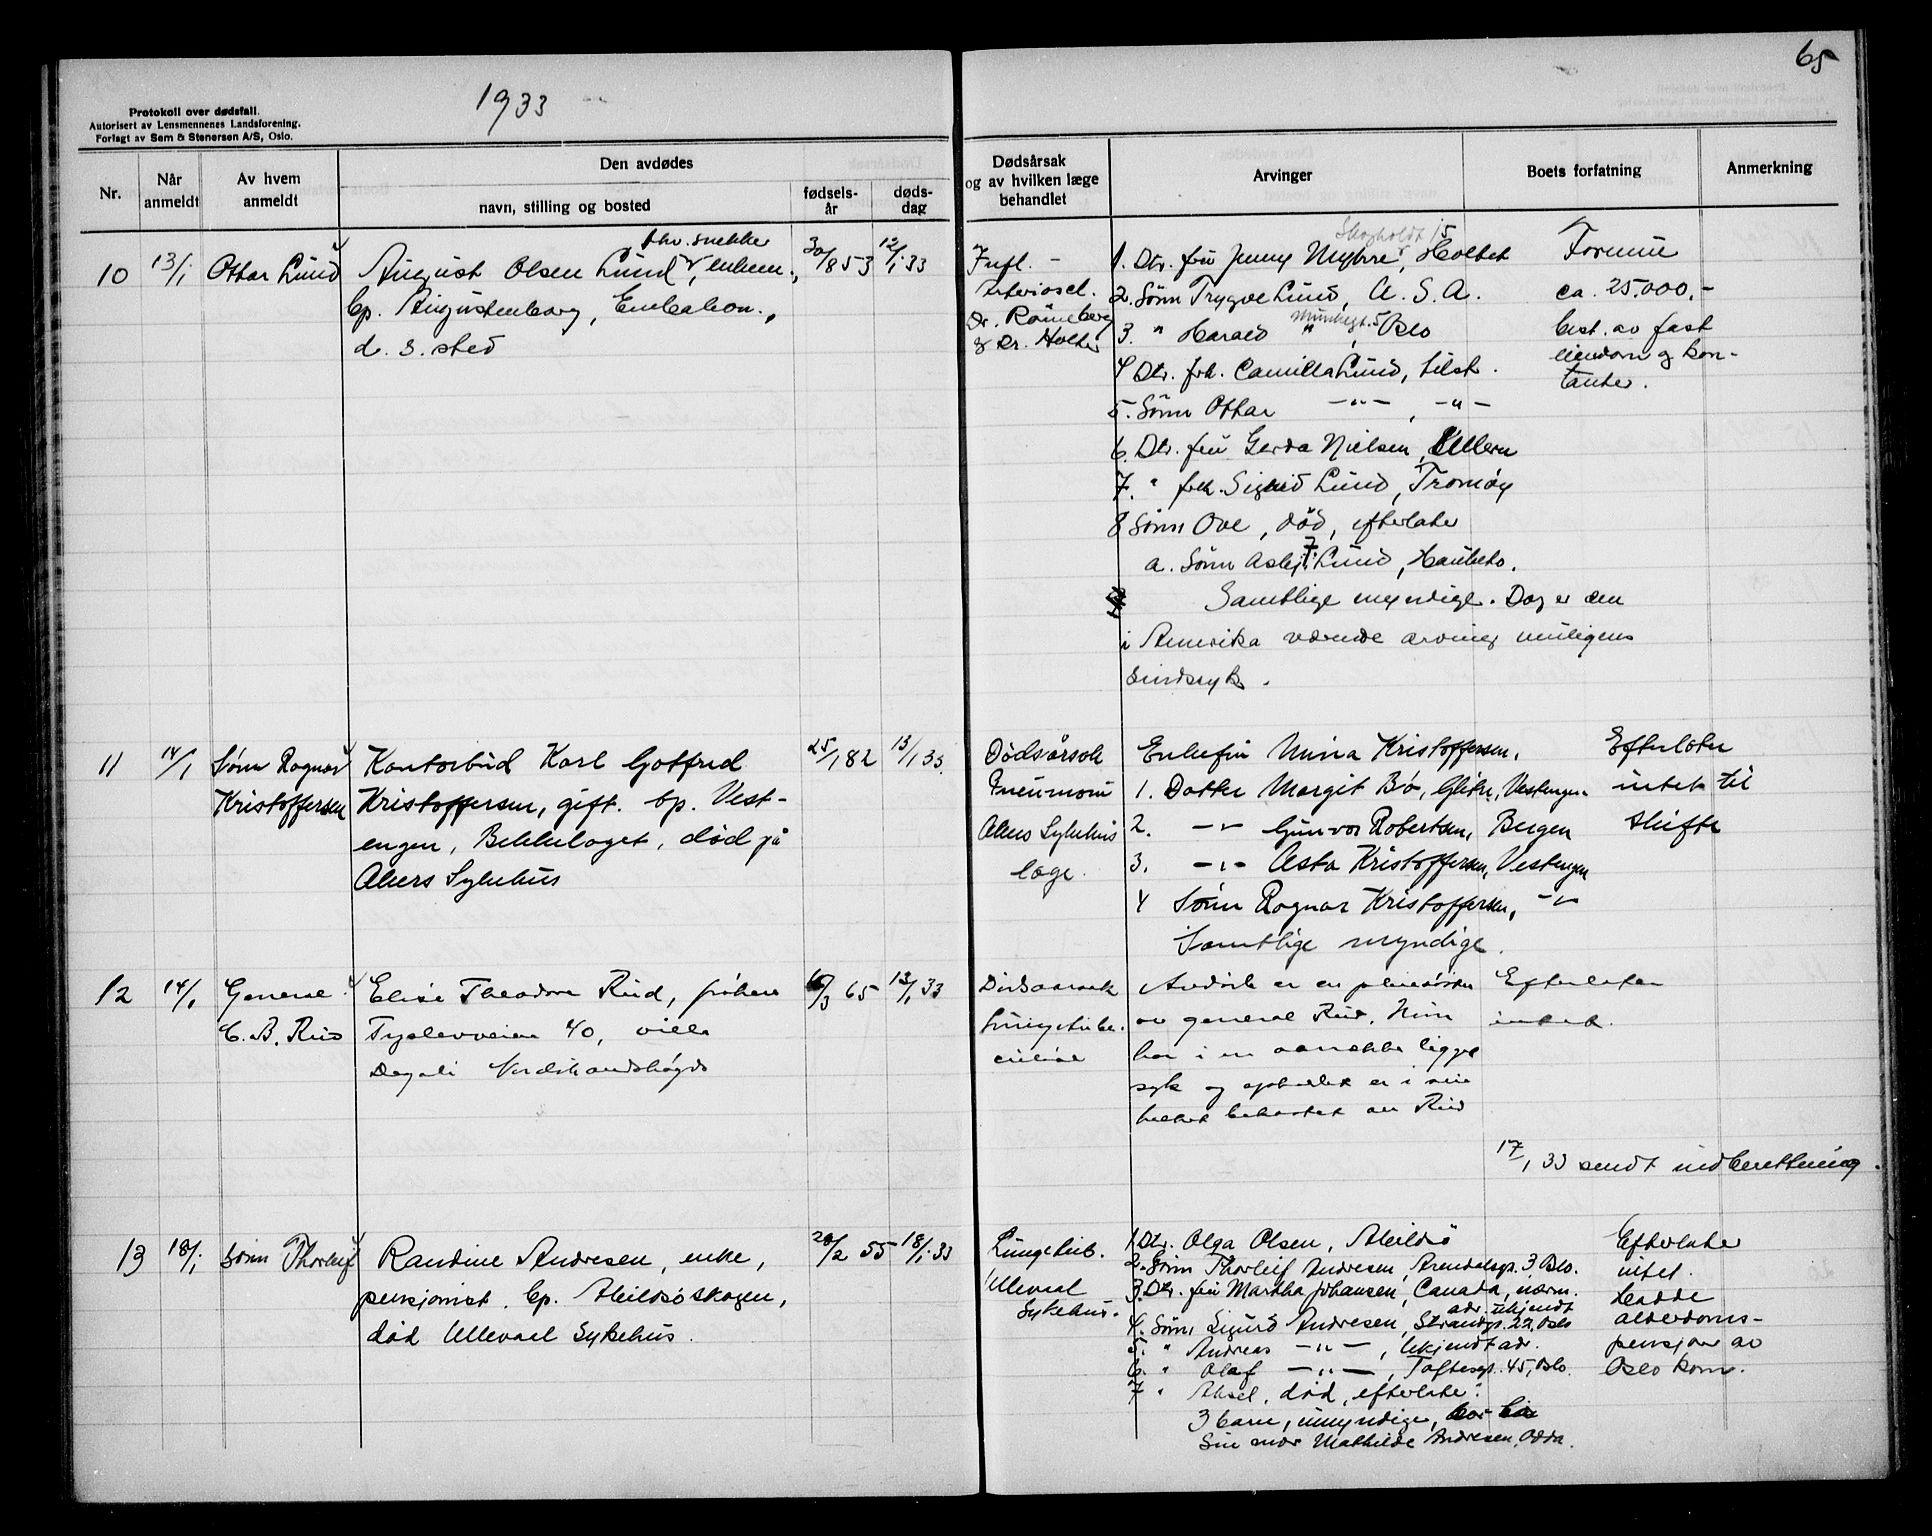 65
1933
Protokoll over dødsfall.
Autorisert av Lensmennenes Landsforening.
Forlagt av Sem & Stenersen A/S, Oslo.
Nr.
Når anmeldt
Av hvem anmeldt
Den avdødes
navn, stilling og bosted
fødselsår
dødsdag
Dødsårsak og av hvilken læge behandlet
Arvinger
Boets forfatning
Anmerkning
10 13/1 Ottar Lund
fhv. snekker
August Olsen Lund, enkem.,
bp. Augustenborg, Enebakkv.,
d. s. sted
30/8 53 12/1 33
Infl. -
Arterioscl.
Dr. Röneberg
& Dr. Holter
Skogholdt 15
1. Dtr. fru Jenny Myhre, Holtet
2. Sønn Trygve Lund, U.S.A.
3. " Harald " Munkegt. 5 Oslo
4 Dtr. frk. Camilla Lund, tilst.
5. Sønn Ottar -"-, -"-
6. Dtr. fru Gerda Nielsen, Ullern
7. " frk. Sigrid Lund, Tromøy
8 Sønn Ove, død, efterlater
a. Sønn Asbj. Lund, Hauketo.
Samtlige myndige. Dog er den
i Amerika værende arving muligens
sindssyk.
Formue
ca. 25.000,-
best. av fast
eiendom og kon-
tanter.
11 14/1 Sønn Ragnar
Kristoffersen
Kontorbud Karl Gotfred
Kristoffersen, gift. bp. Vest-
engen, Bekkelaget, død på
Akers Sykehus
25/1 82 13/1 33.
Dødsårsak
Pneumoni
Akers Sykehus
læge.
Enkefru Mina Kristoffersen.
1. Datter Margit Bø, Vestengen
2. -"- Gunvor Robertsen, Bergen
3. -"- Asta Kristoffersen, Vestengen
4 Sønn Ragnar Kristoffersen, -"-
Samtlige myndige.
Efterlater
intet til
skifte
12 14/1 General
C. B. Rud
Elise Theodora Rud, frøken
40, villa
Dagali Nordstrandshøgda
/3 65 13/1 33
Dødsaarsak
Lungetube.
Avdøde er en
av general Rud. Hun
har i en aarrekke ligget
syk og opholdet er i sin
helhet bekostet av Rud
Efterlater
intet.
17/1 33 sendt indberettning.
13 18/1 Sønn Thorleif
Randine Andresen, enke,
pensjonist. bp. Abildsøskogen,
død Ullevaal Sykehus.
20/2 55 18/1 33
Lungetub.
Ullevaal
Sykehus.
1 Dtr. Olga Olsen, Abildsø
2. Sønn Thorleif Andresen, Arendalsgt. 3 Oslo.
3. Dtr. fru Martha Johansen, Canada, nærm.
adr. ukjendt
4. Sønn Sigurd Andresen, Strandgt. 22, Oslo
5. " Andreas -"-, Ukjendt adr.
6. " Olaf -"-, Toftesgt. 45, Oslo.
7 " Aksel, død, efterlater:
3 barn, umyndige, hos
sin mor Mathilde Andresen, Odda.
Efterlater
intet.
Hadde
alderdoms-
pensjon av
Oslo kom.